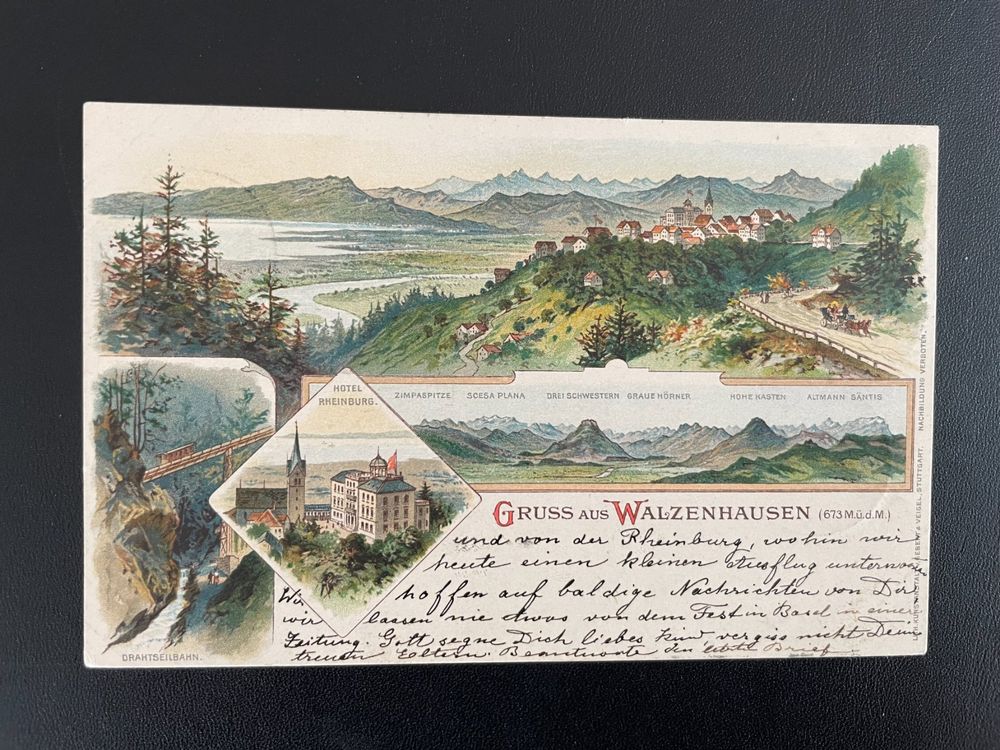 HOTEL
RHEINBURG.
ZIMPASPITZE SCESA PLANA DREI SCHWESTERN GRAUE HÖRNER HOHE KASTEN ALTMANN SÄNTIS
DRAHTSEILBAHN.
GRUSS AUS WALZENHAUSEN (673 M.ü.d.M.)
und von der Rheinburg, wohin wir
heute einen kleinen Ausflug unternom̄
Wir hoffen auf baldige Nachrichten von Dir
wir lassen nie etwas von dem Fest in Basel in einer
Zeitung. Gott segne Dich liebes Kind vergiss nicht Deine
treuen Eltern. Beantworte den Brief.
VEIGEL, STUTTGART. NACHBILDUNG VERBOTEN.